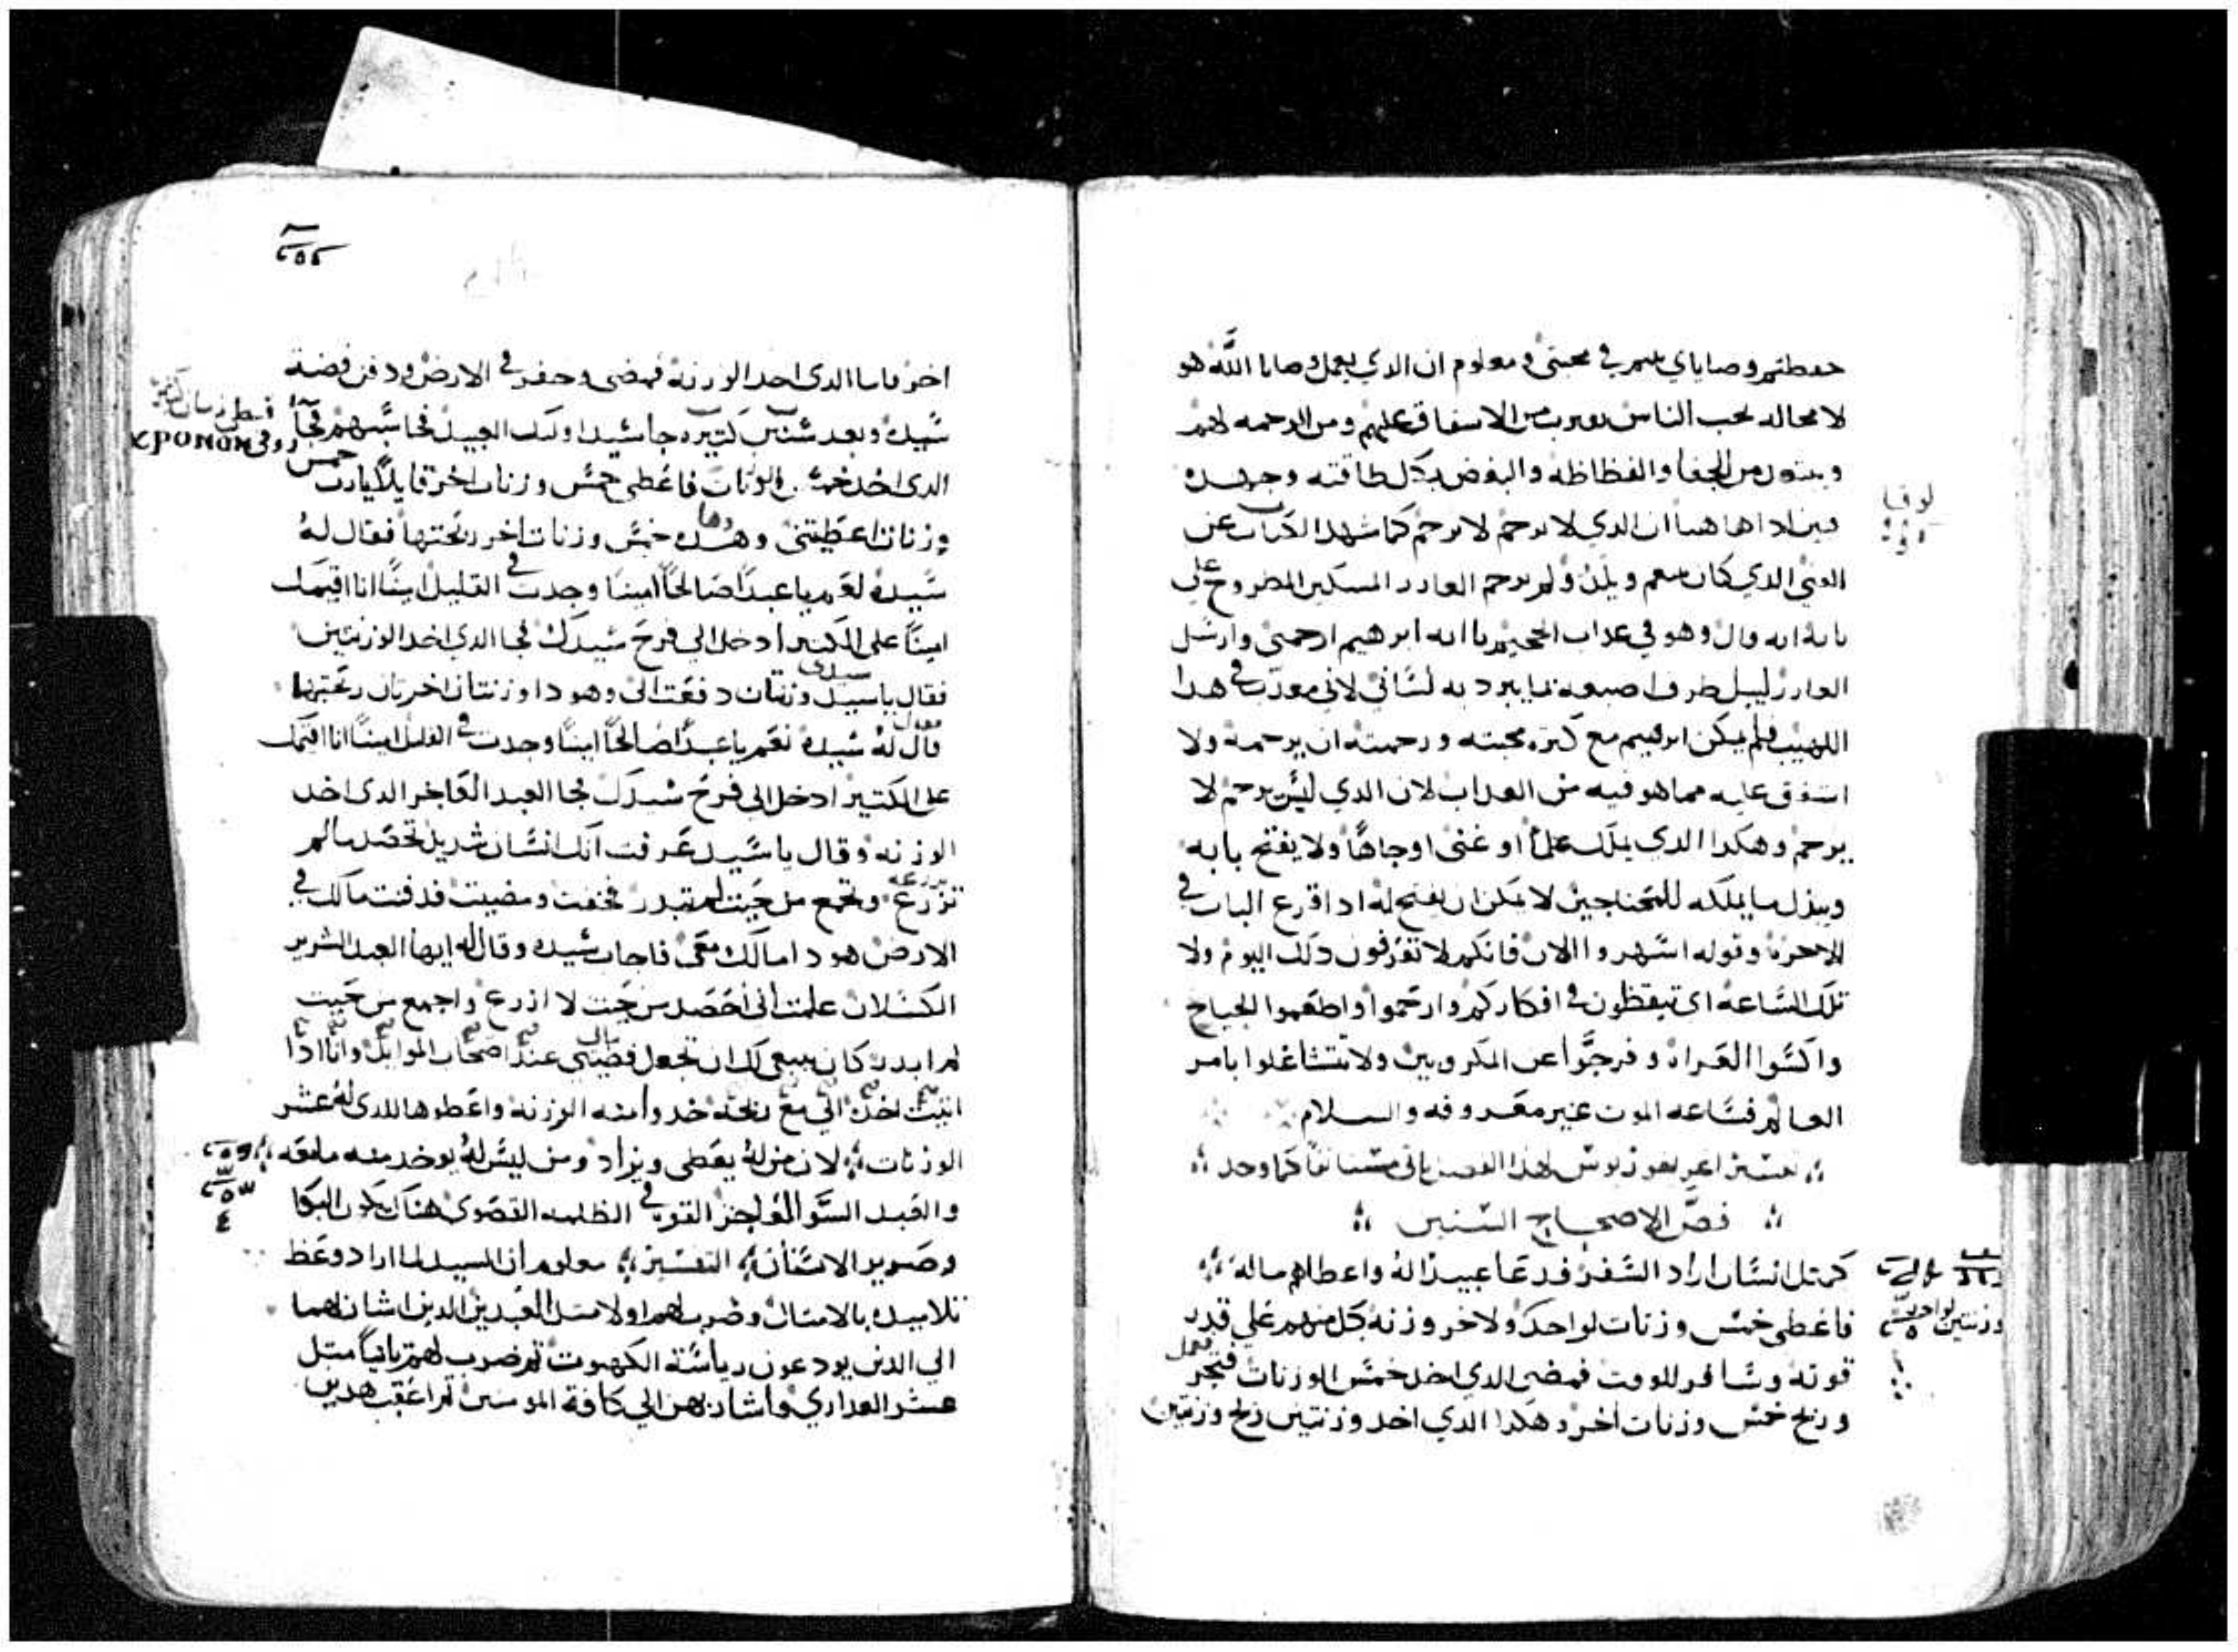 حفطتم وصاياي في محبتي ومعلوم ان الدي يعمل وصايا اللَّه هو
لا محاله يحب الناس من الاشفاق عليهم ومن الرحمه لهم
من الجفا والفظاظه والبغض بكل طاقته وجهده
هاهنا ان الدي لا يرحم لا يرحم كما شهد الكتاب عن
الغني الدي كان ولم يرحم العازر المسكين المطروح على
بابه انه قال وهو في عداب الجحيم يا ابه ابرهيم ارحمني وارسل
العازر ليبل طرف اصبعه بما يبرد به لساني لاني معدب في هدا
اللهيب فلم يمكن ابرهيم مع كترة محبته ورحمته ان يرحمه ولا
اشفق عليه مما هو فيه من العداب لان الدي ليس يرحم لا
يرحم وهكدا الدي يملك علمًا او غنى او جاهًا ولا يفتح بابه
ويبدل ما يملكه للمحتاجين لا يمكن ان يفتح له ادا قرع الباب في
الاخره وقوله اسهروا الان فانكم لا تعرفون دلك اليوم ولا
تلك الساعه اى تيقظون في افكاركم وارحموا واطعموا الجياع
واكسوا العراه وفرجوا عن المكروبين ولا تتشاغلوا بامر
العالم فساعه الموت غير معروفه والسلام
لهدا الفصل
فص الاصحاح الستين
كمتل انسان اراد السفر فدعا عبيدًا له واعطاهم ماله
فاعطى خمس وزنات لواحد ولاخر وزنه كل منهم على قدر
قوته وسافر للوقت فمضى الدي اخد خمس الوزنات فتجر
وربح خمس وزنات اخر وهكدا الدي اخد وزنتين ربح وزنتين
لوقا
وزنتين لواحد
اخر فاما الدى اخد الوزنه فمضى وحفر في الارض ودفن فضة
سيده وبعد سنين كتيره جا سيد اوليك العبيد فحاسبهم فجا
الدى اخد خمس الوزنات فاعطى خمس وزنات اخر قايلًا يارب خمس
وزنات اعطيتنى وهده خمس وزنات اخر ربحتها فقال له
سيده نعم يا عبدًا صالحًا امينًا وجدت في القليل امينًا انا اقيمك
امينًا على الكتير ادخل الى فرح سيدك فجا الدي اخد الوزنتين
فقال يا سيد وزنتان دفعت الى وهودا وزنتان اخريان ربحتهما
قال له سيده نعم يا عبدًا صالحًا امينًا وجدت في القليل امينًا انا اقيمك
على الكتير ادخل الى فرح سيدك فجا العبد الفاجر الدى اخد
الوزنه وقال يا سيد عرفت انك انسان شديد تحصد مالم
تزرع وتجمع من حيت لم تبدر فخفت ومضيت فدفنت مالك في
الارض هودا مالك معى فاجاب سيده وقال له ايها العبد الشرير
الكسلان علمت انى احصد من حيت لا ازرع واجمع من حيت
لم ابدر كان ينبغى لك ان تجعل فضتي عند اصحاب الموايد وانا ادا
اتيت اخد الي مع ربحه خدوا منه الوزنه واعطوها للدى له عشر
الوزنات لان من له يعطى ويزاد ومن ليس له يوخد منه ما معه
والعبد السو الفاجر القوه في الظلمه القصوى هناك يكون البكا
وصرير الاسنان التفسير معلوم ان السيد لما اراد وعظ
تلاميده بالامتال وضرب لهم اولا متل العبدين الدين اشار بهما
الي الدين يودعون رياسة الكهنوت تم ضرب لهم تانيًا متل
عشر العداري واشار بهن الي كافة المومنين تم اعقب هدين